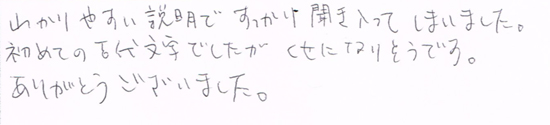 わかりやすい説明ですっかり聞き入ってしまいました。
初めての古代文字でしたがくせになりそうです。
ありがとうございました。